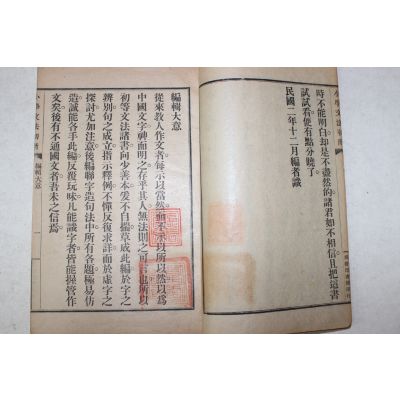 時不能明白却是不盡然的諸君如不相信且把這書
試試看便有點分曉了
民國二年十二月編者識
編輯大意
從來教人作文者每示以當然而不示以所以然以爲
中國文字神而明之存乎其人無法則之可言也所以
初等文法諸書向少善本爰不自揣草成此編於字之
辨別句之成立指示釋例不憚反復求詳而於虛字之
探討尤加注意後編聯字造句法中所有各題極易仿
造誠能各手此編反覆玩味凡能識字者皆能操管作
文矣後有不通國文者吾未之信爲
編輯大意
一